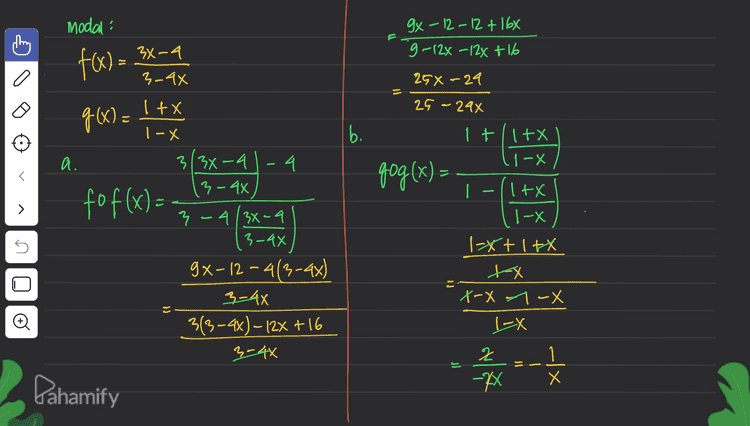 modal :
f(x) = (3x - 4)/(3 - 4x)
g(x) = (1 + x)/(1 - x)
a.
fof(x) = (3((3x - 4)/(3 - 4x)) - 4)/(3 - 4((3x - 4)/(3 - 4x)))
= ((9x - 12 - 4(3 - 4x))/(3 - 4x))/((3(3 - 4x) - 12x + 16)/(3 - 4x))
= (9x - 12 - 12 + 16x)/(9 - 12x - 12x + 16)
= (25x - 24)/(25 - 24x)
b.
gog(x) = (1 + ((1 + x)/(1 - x)))/(1 - ((1 + x)/(1 - x)))
= ((1 - x + 1 + x)/(1 - x))/((1 - x - 1 - x)/(1 - x))
= 2/(-2x) = - 1/x
Pahamify